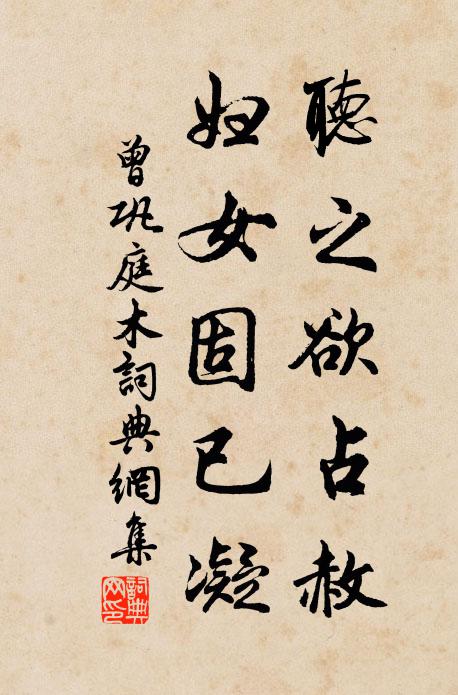 聽之欲占赦
妇女固已凝
曾巩庭木詞典網集
詞典
网印